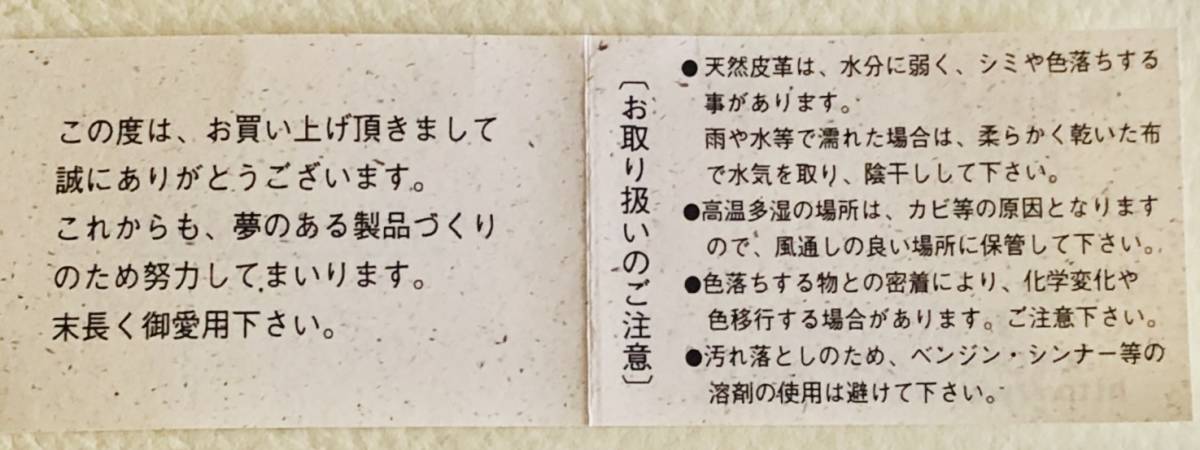 この度は、お買い上げ頂きまして
誠にありがとうございます。
これからも、夢のある製品づくり
のため努力してまいります。
末長く御愛用下さい。
〔お取り扱いのご注意〕
●天然皮革は、水分に弱く、シミや色落ちする
事があります。
雨や水等で濡れた場合は、柔らかく乾いた布
で水気を取り、陰干しして下さい。
●高温多湿の場所は、カビ等の原因となります
ので、風通しの良い場所に保管して下さい。
●色落ちする物との密着により、化学変化や
色移行する場合があります。ご注意下さい。
●汚れ落としのため、ベンジン・シンナー等の
溶剤の使用は避けて下さい。